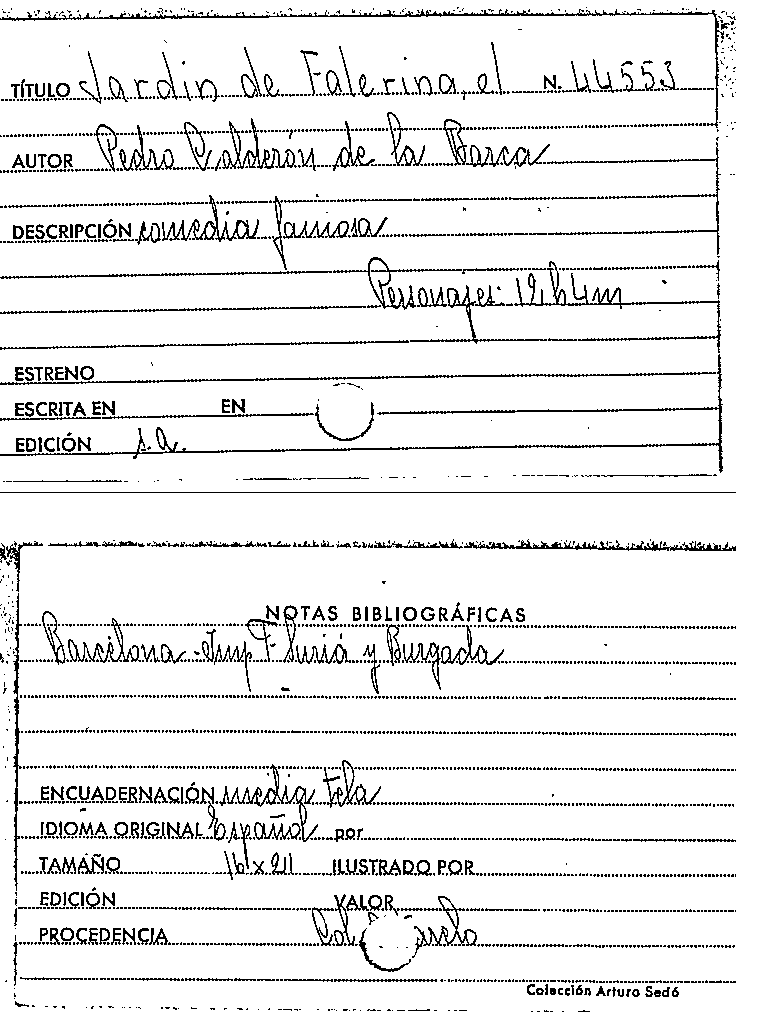 TÍTULO Jardin de Falerina, el N. 44553
AUTOR Pedro Calderón de la Barca
DESCRIPCIÓN comedia famosa
Personajes: 12h4m
ESTRENO
ESCRITA EN EN
EDICIÓN s.a.
NOTAS BIBLIOGRÁFICAS
Barcelona - Imp F. Suriá y Burgada
ENCUADERNACIÓN media tela
IDIOMA ORIGINAL Español por
TAMAÑO 16 x 211 ILUSTRADO POR
EDICIÓN VALOR
PROCEDENCIA Col.
Colección Arturo Sedó